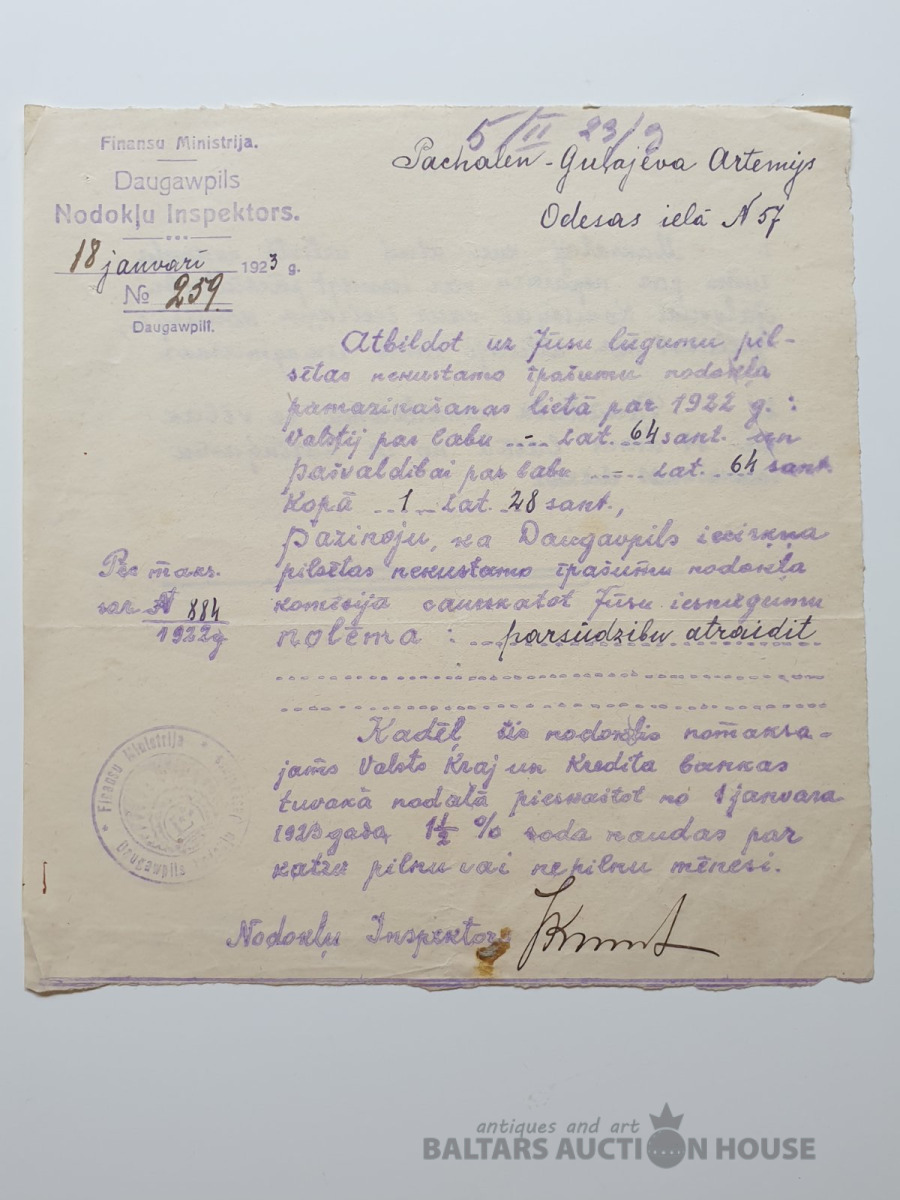 5/II 23/9
Finansu Ministrija.
Daugawpils
Nodokļu Inspektors.
18 janvarī 1923 g.
№ 259
Daugawpilī.
Pachalen-Guļajeva Artemijs
Odesas ielā N 57
Atbildot uz Jūsu lūgumu pil-
sētas nekustamo īpašumu nodokļa
pamazināšanas lietā par 1922 g.:
Valstij par labu - Lat. 64 sant. un
Pašvaldībai par labu - Lat. 64 sant.
Kopā 1 Lat. 28 sant.,
Paziņoju, ka Daugavpils iecirkņa
pilsētas nekustamo īpašumu nodokļa
komisija caurskatot Jūsu iesniegumu
nolēma: pārsūdzību atraidīt
Pēc maks.
sar. № 884
1922 g
Kadēļ šis nodoklis nomaksa-
jams Valsts Kraj un Kredita bankas
tuvakā nodaļā pieskaitot no 1 janvara
1923 gada 1½ % soda naudas par
katru pilnu vai nepilnu mēnesi.
Nodokļu Inspektors
Finansu Ministrija
Daugawpils
antiques and art
BALTARS AUCTION HOUSE